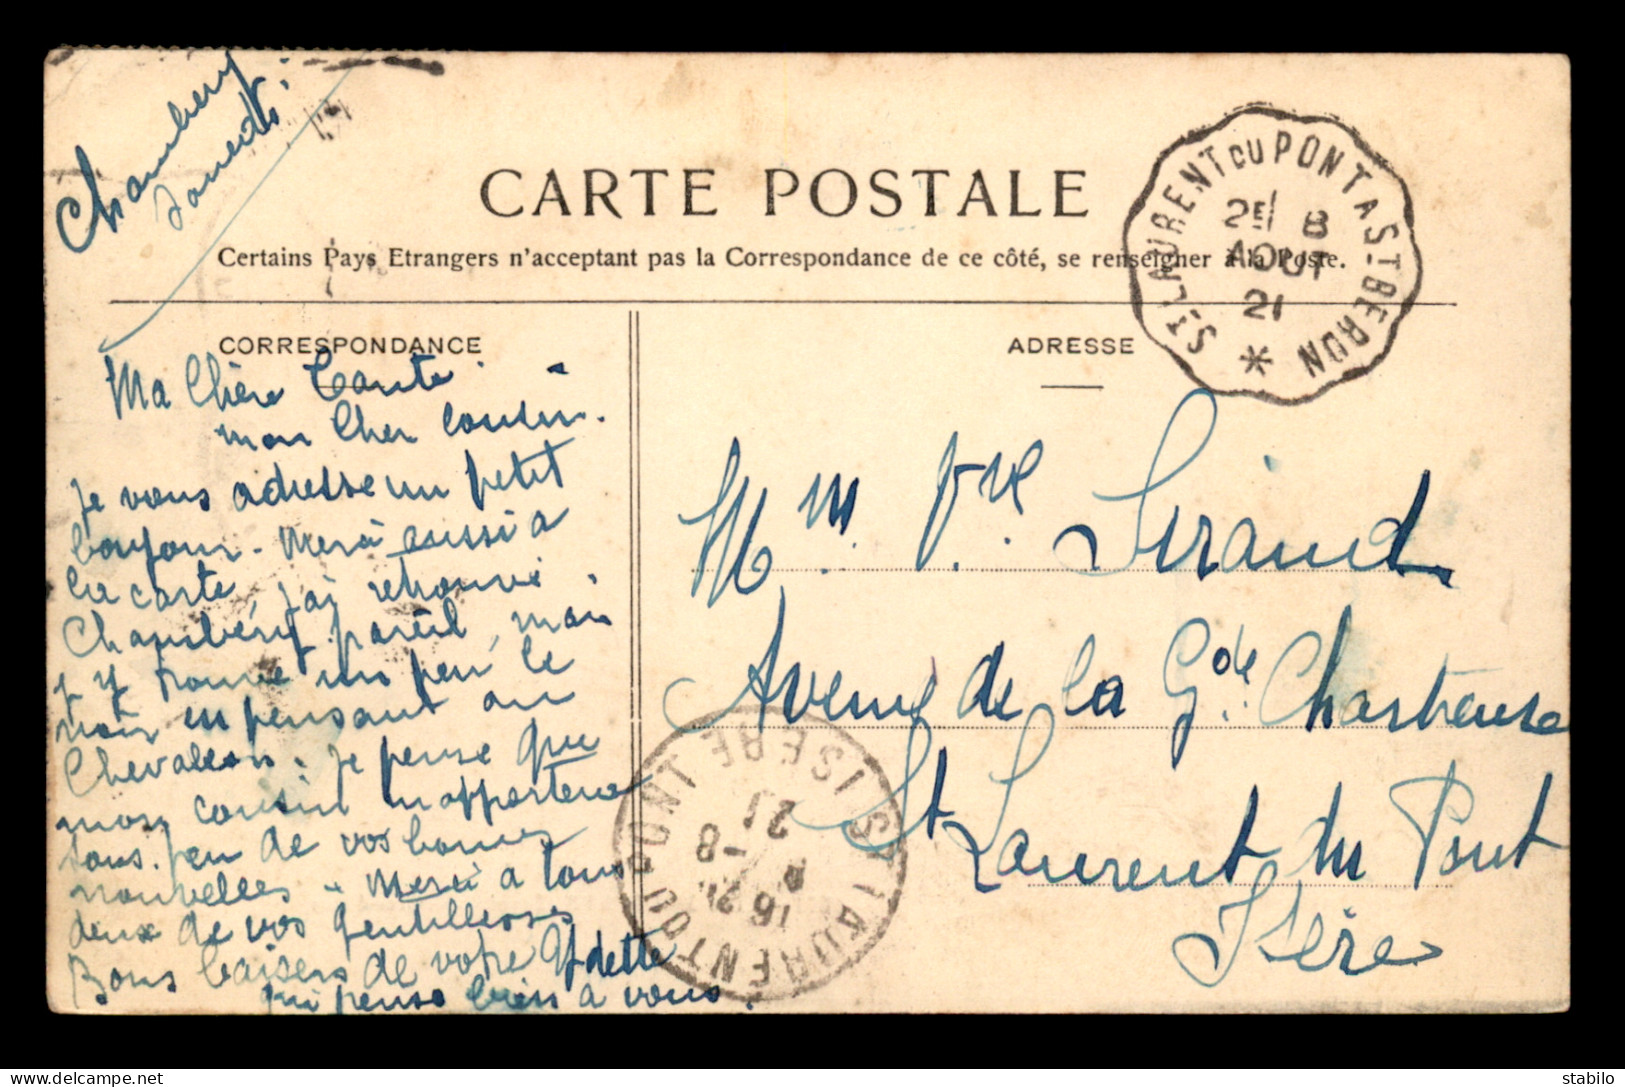 Chambery
Samedi
CARTE POSTALE
Certains Pays Etrangers n'acceptant pas la Correspondance de ce côté, se renseigner à la Poste.
CORRESPONDANCE
Ma Chère Tante
mon Cher Cousin.
Je vous adresse un petit
bonjour. Merci aussi a
la carte, j'ai retrouvé
Chambery pareil, mais
j'y trouve un peu le
noir en pensant au
Chevaleon. Je pense que
mon cousin m'apportera
sous peu de vos bonnes
nouvelles. Merci a tous
deux de vos gentillesses
Bons baisers de votre Odette
qui pense bien a vous.
ADRESSE
Mme Vve Siraud
Avenue de la Gde Chartreuse
St Laurent du Pont
Isère
ST LAURENT DU PONT A ST-BERON
25 8
AOUT
21
ST LAURENT DU PONT ISERE
16
-8
21
stabilo